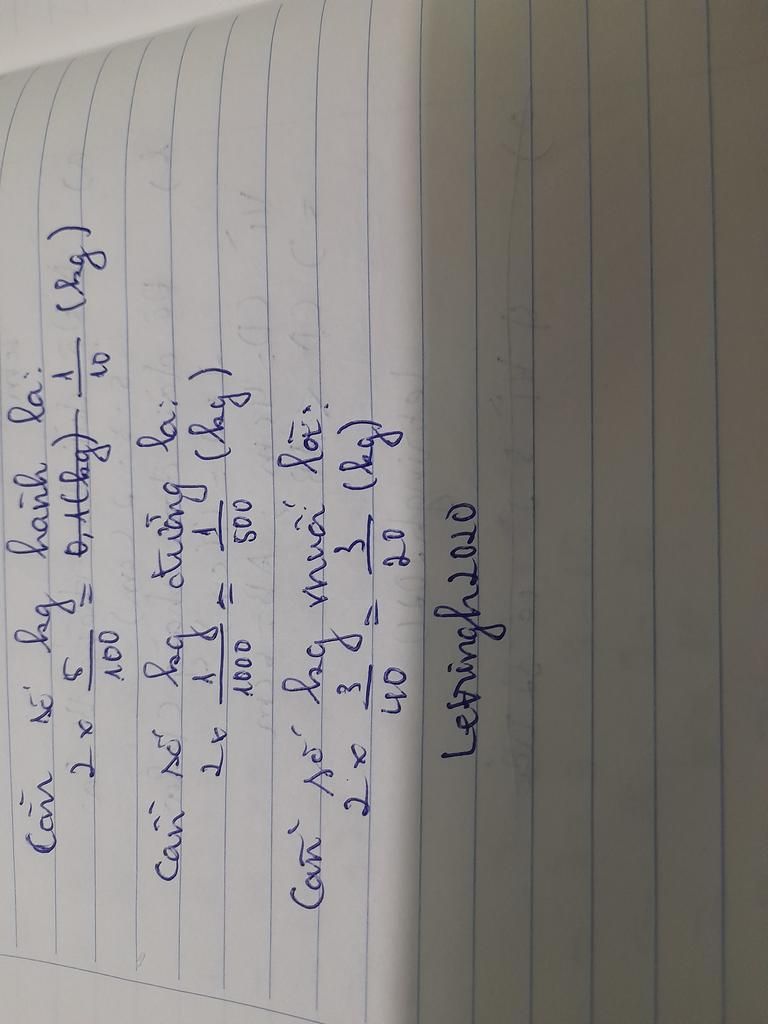 Cần số kg hành là:
2 x 5/100 = 0,1(kg) 1/10 (kg)
Cần số kg đường là:
2 x 1/1000 = 1/500 (kg)
Cần số kg muối là:
2 x 3/40 = 3/20 (kg)
Letringh2020